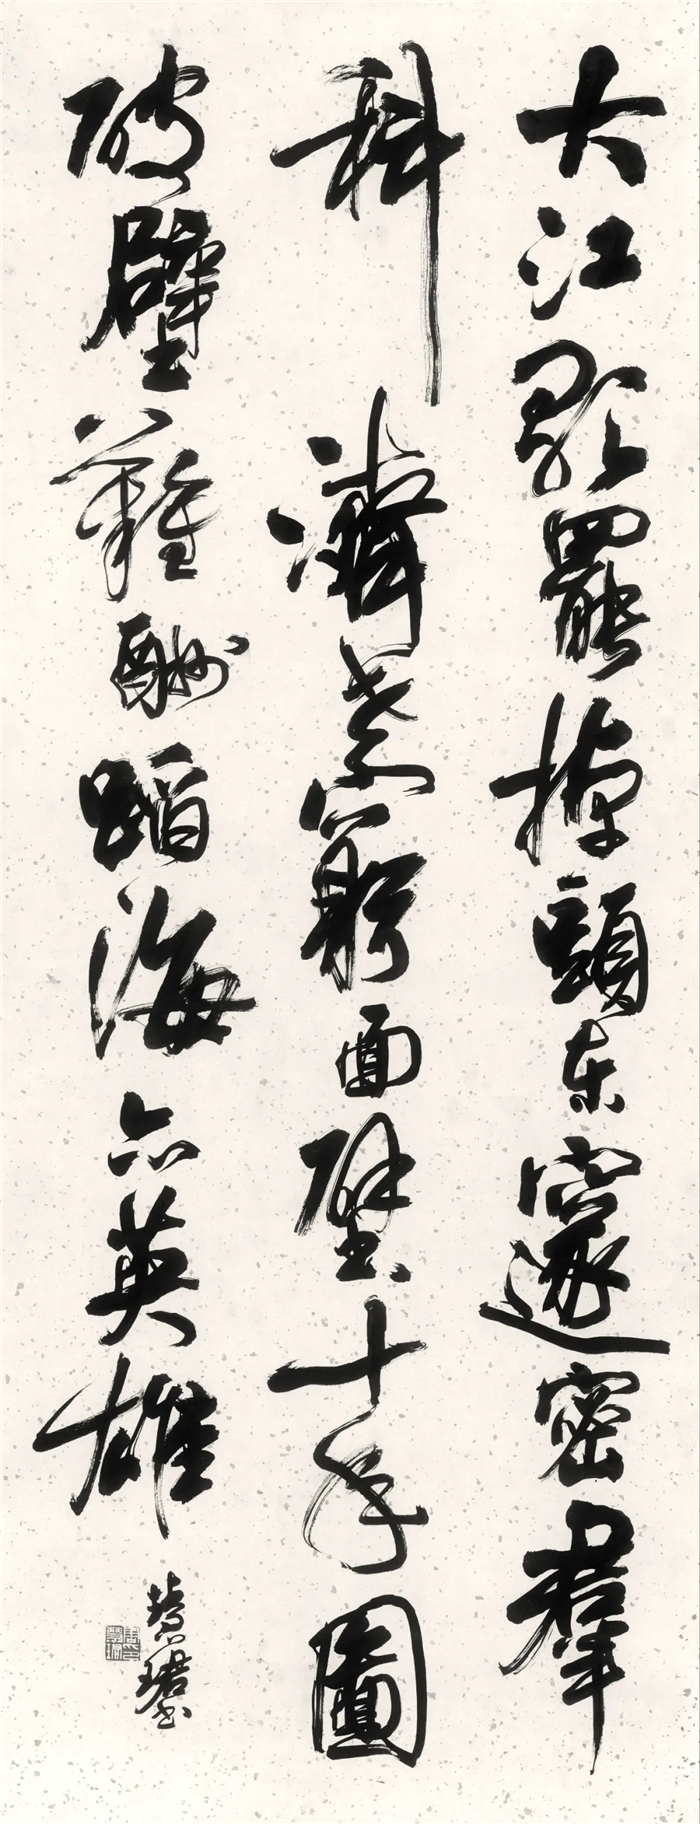 大江歌罷掉頭東邃密羣
科濟世窮面壁十年圖
破壁難酬蹈海亦英雄
慧珺書